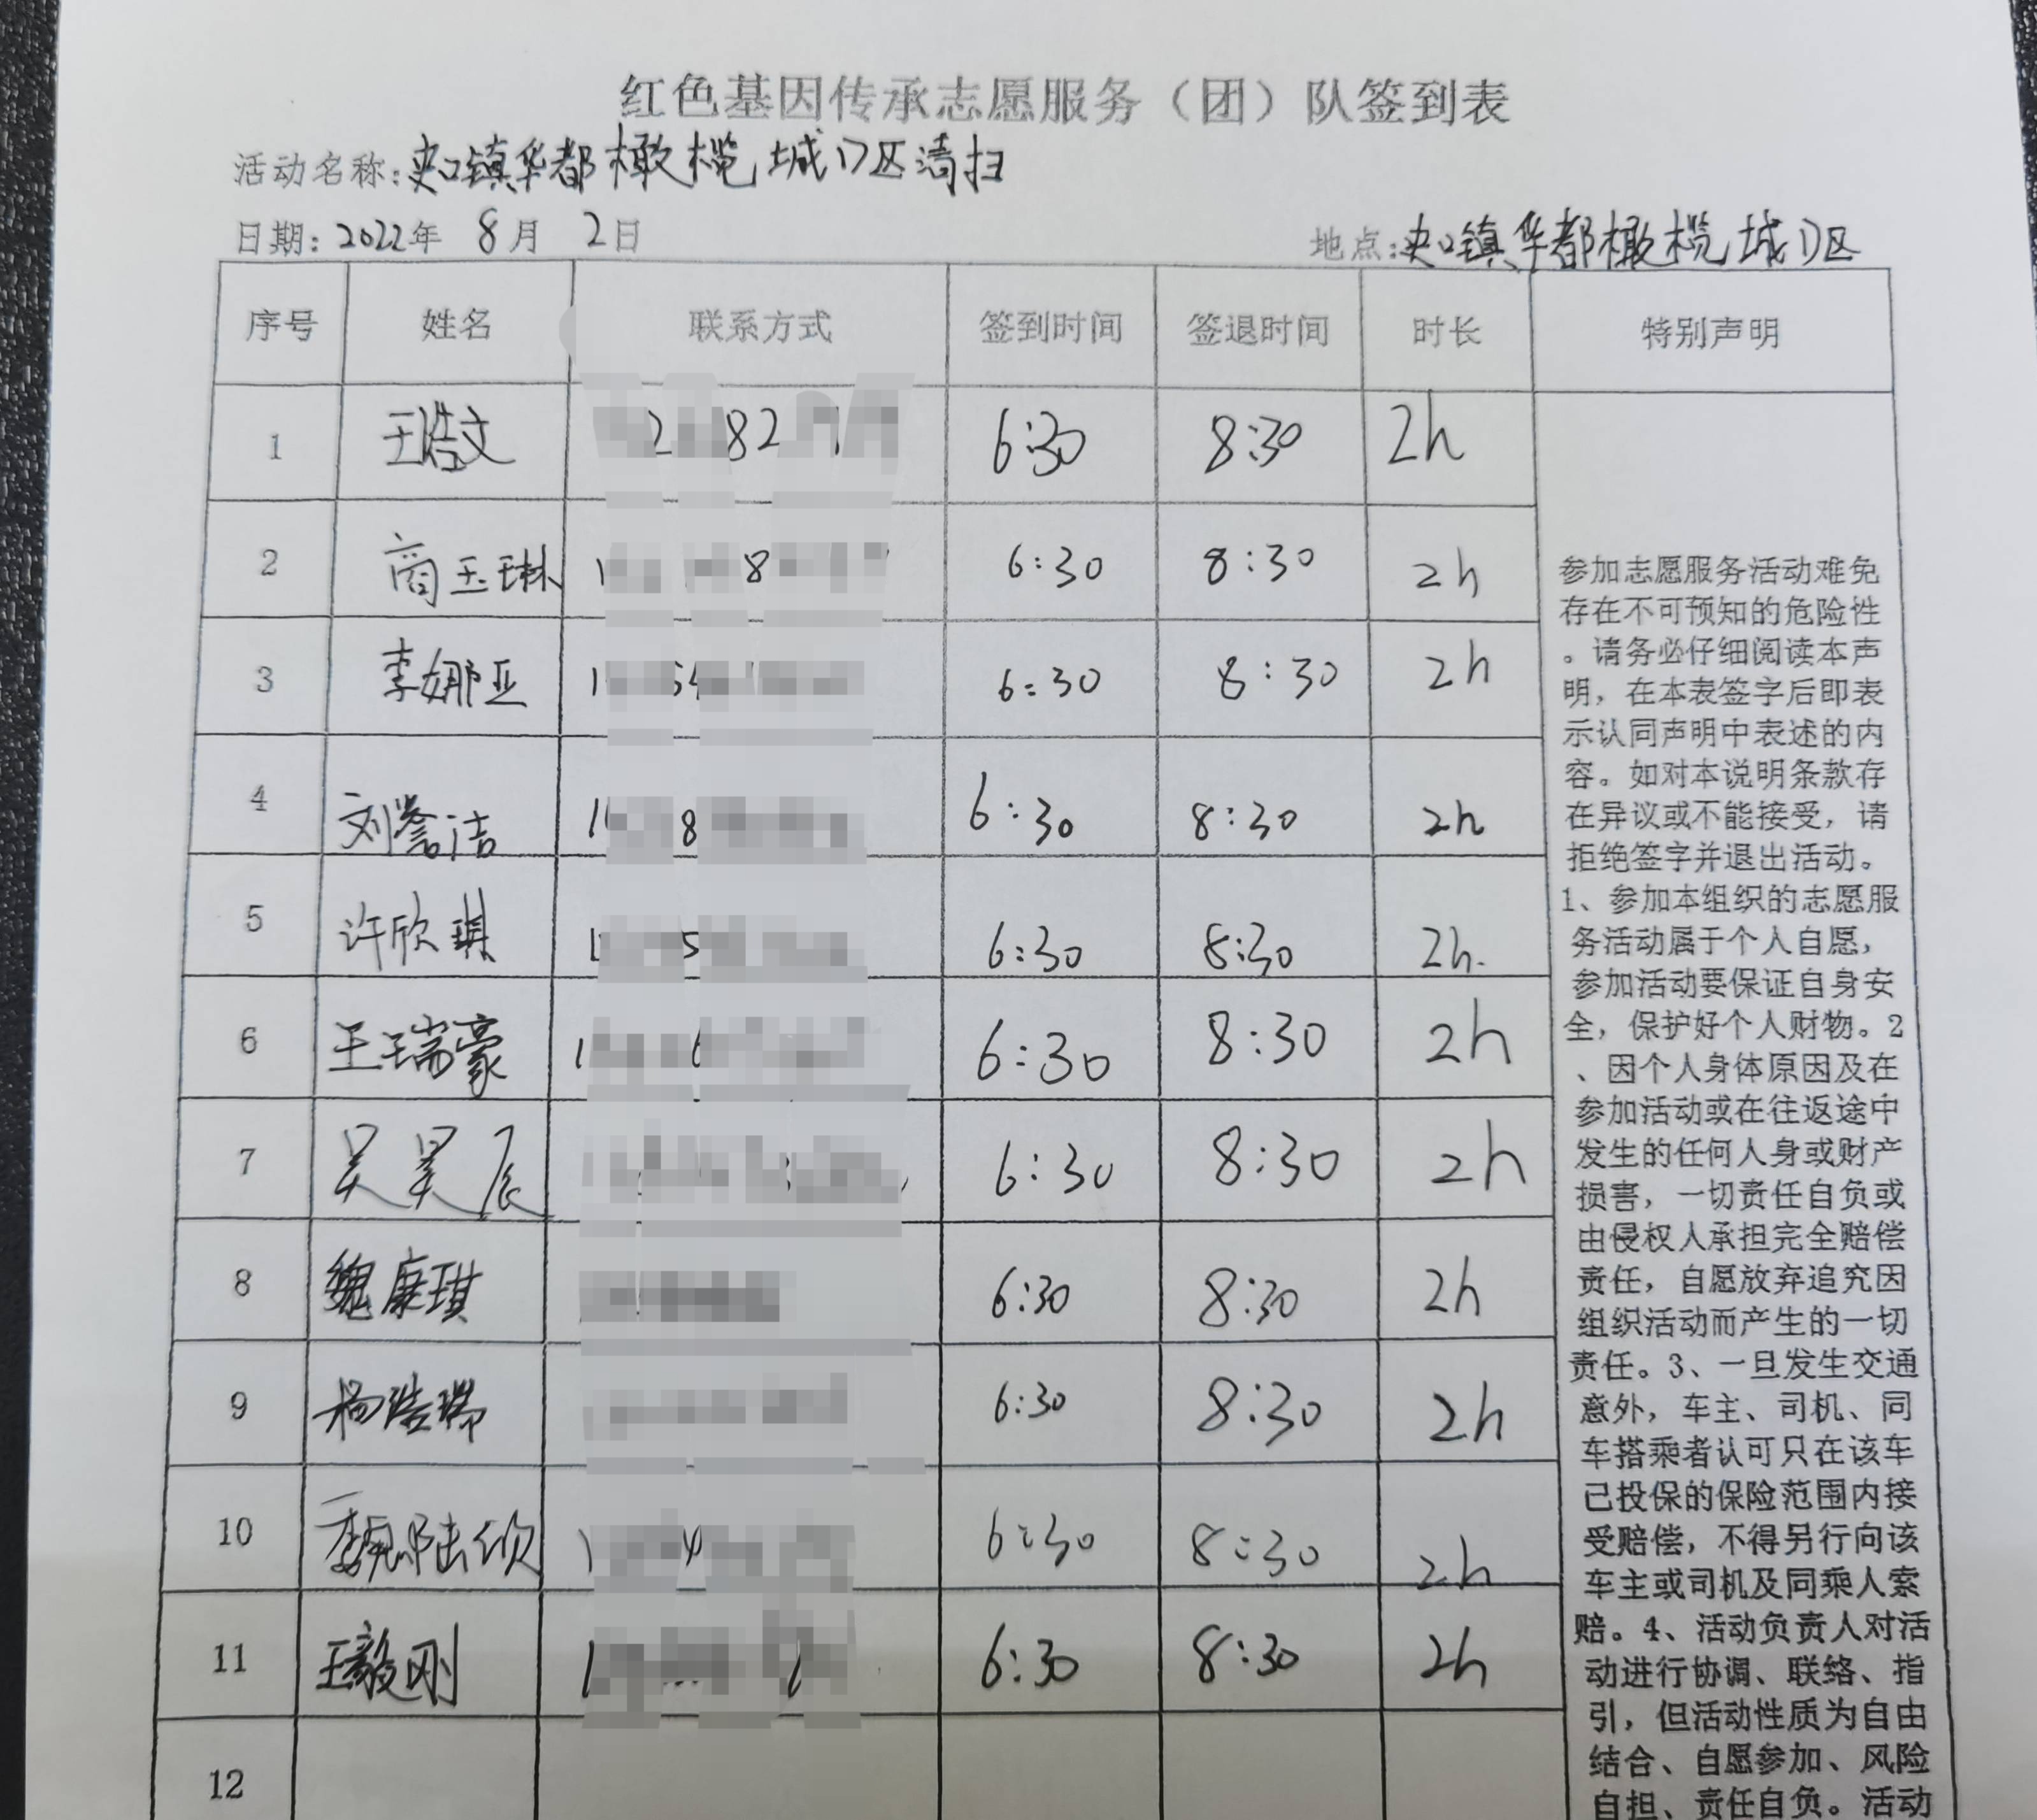 红色基因传承志愿服务（团）队签到表
活动名称:史口镇华都橄榄城D区清扫
日期: 2022年 8月 2日 地点:史口镇华都橄榄城D区
序号 姓名 联系方式 签到时间 签退时间 时长 特别声明
1 王浩文 6:30 8:30 2h
2 商玉琳 6:30 8:30 2h
3 李娜亚 6:30 8:30 2h
4 刘誉洁 6:30 8:30 2h
5 许欣琪 6:30 8:30 2h.
6 王瑞豪 6:30 8:30 2h
7 吴昊辰 6:30 8:30 2h
8 魏康琪 6:30 8:30 2h
9 杨浩瑞 6:30 8:30 2h
10 6:30 8:30 2h
11 王毅刚 6:30 8:30 2h
12
参加志愿服务活动难免
存在不可预知的危险性
。请务必仔细阅读本声
明，在本表签字后即表
示认同声明中表述的内
容。如对本说明条款存
在异议或不能接受，请
拒绝签字并退出活动。
1、参加本组织的志愿服
务活动属于个人自愿，
参加活动要保证自身安
全，保护好个人财物。2
、因个人身体原因及在
参加活动或在往返途中
发生的任何人身或财产
损害，一切责任自负或
由侵权人承担完全赔偿
责任，自愿放弃追究因
组织活动而产生的一切
责任。3、一旦发生交通
意外，车主、司机、同
车搭乘者认可只在该车
已投保的保险范围内接
受赔偿，不得另行向该
车主或司机及同乘人索
赔。4、活动负责人对活
动进行协调、联络、指
引，但活动性质为自由
结合、自愿参加、风险
自担、责任自负。活动